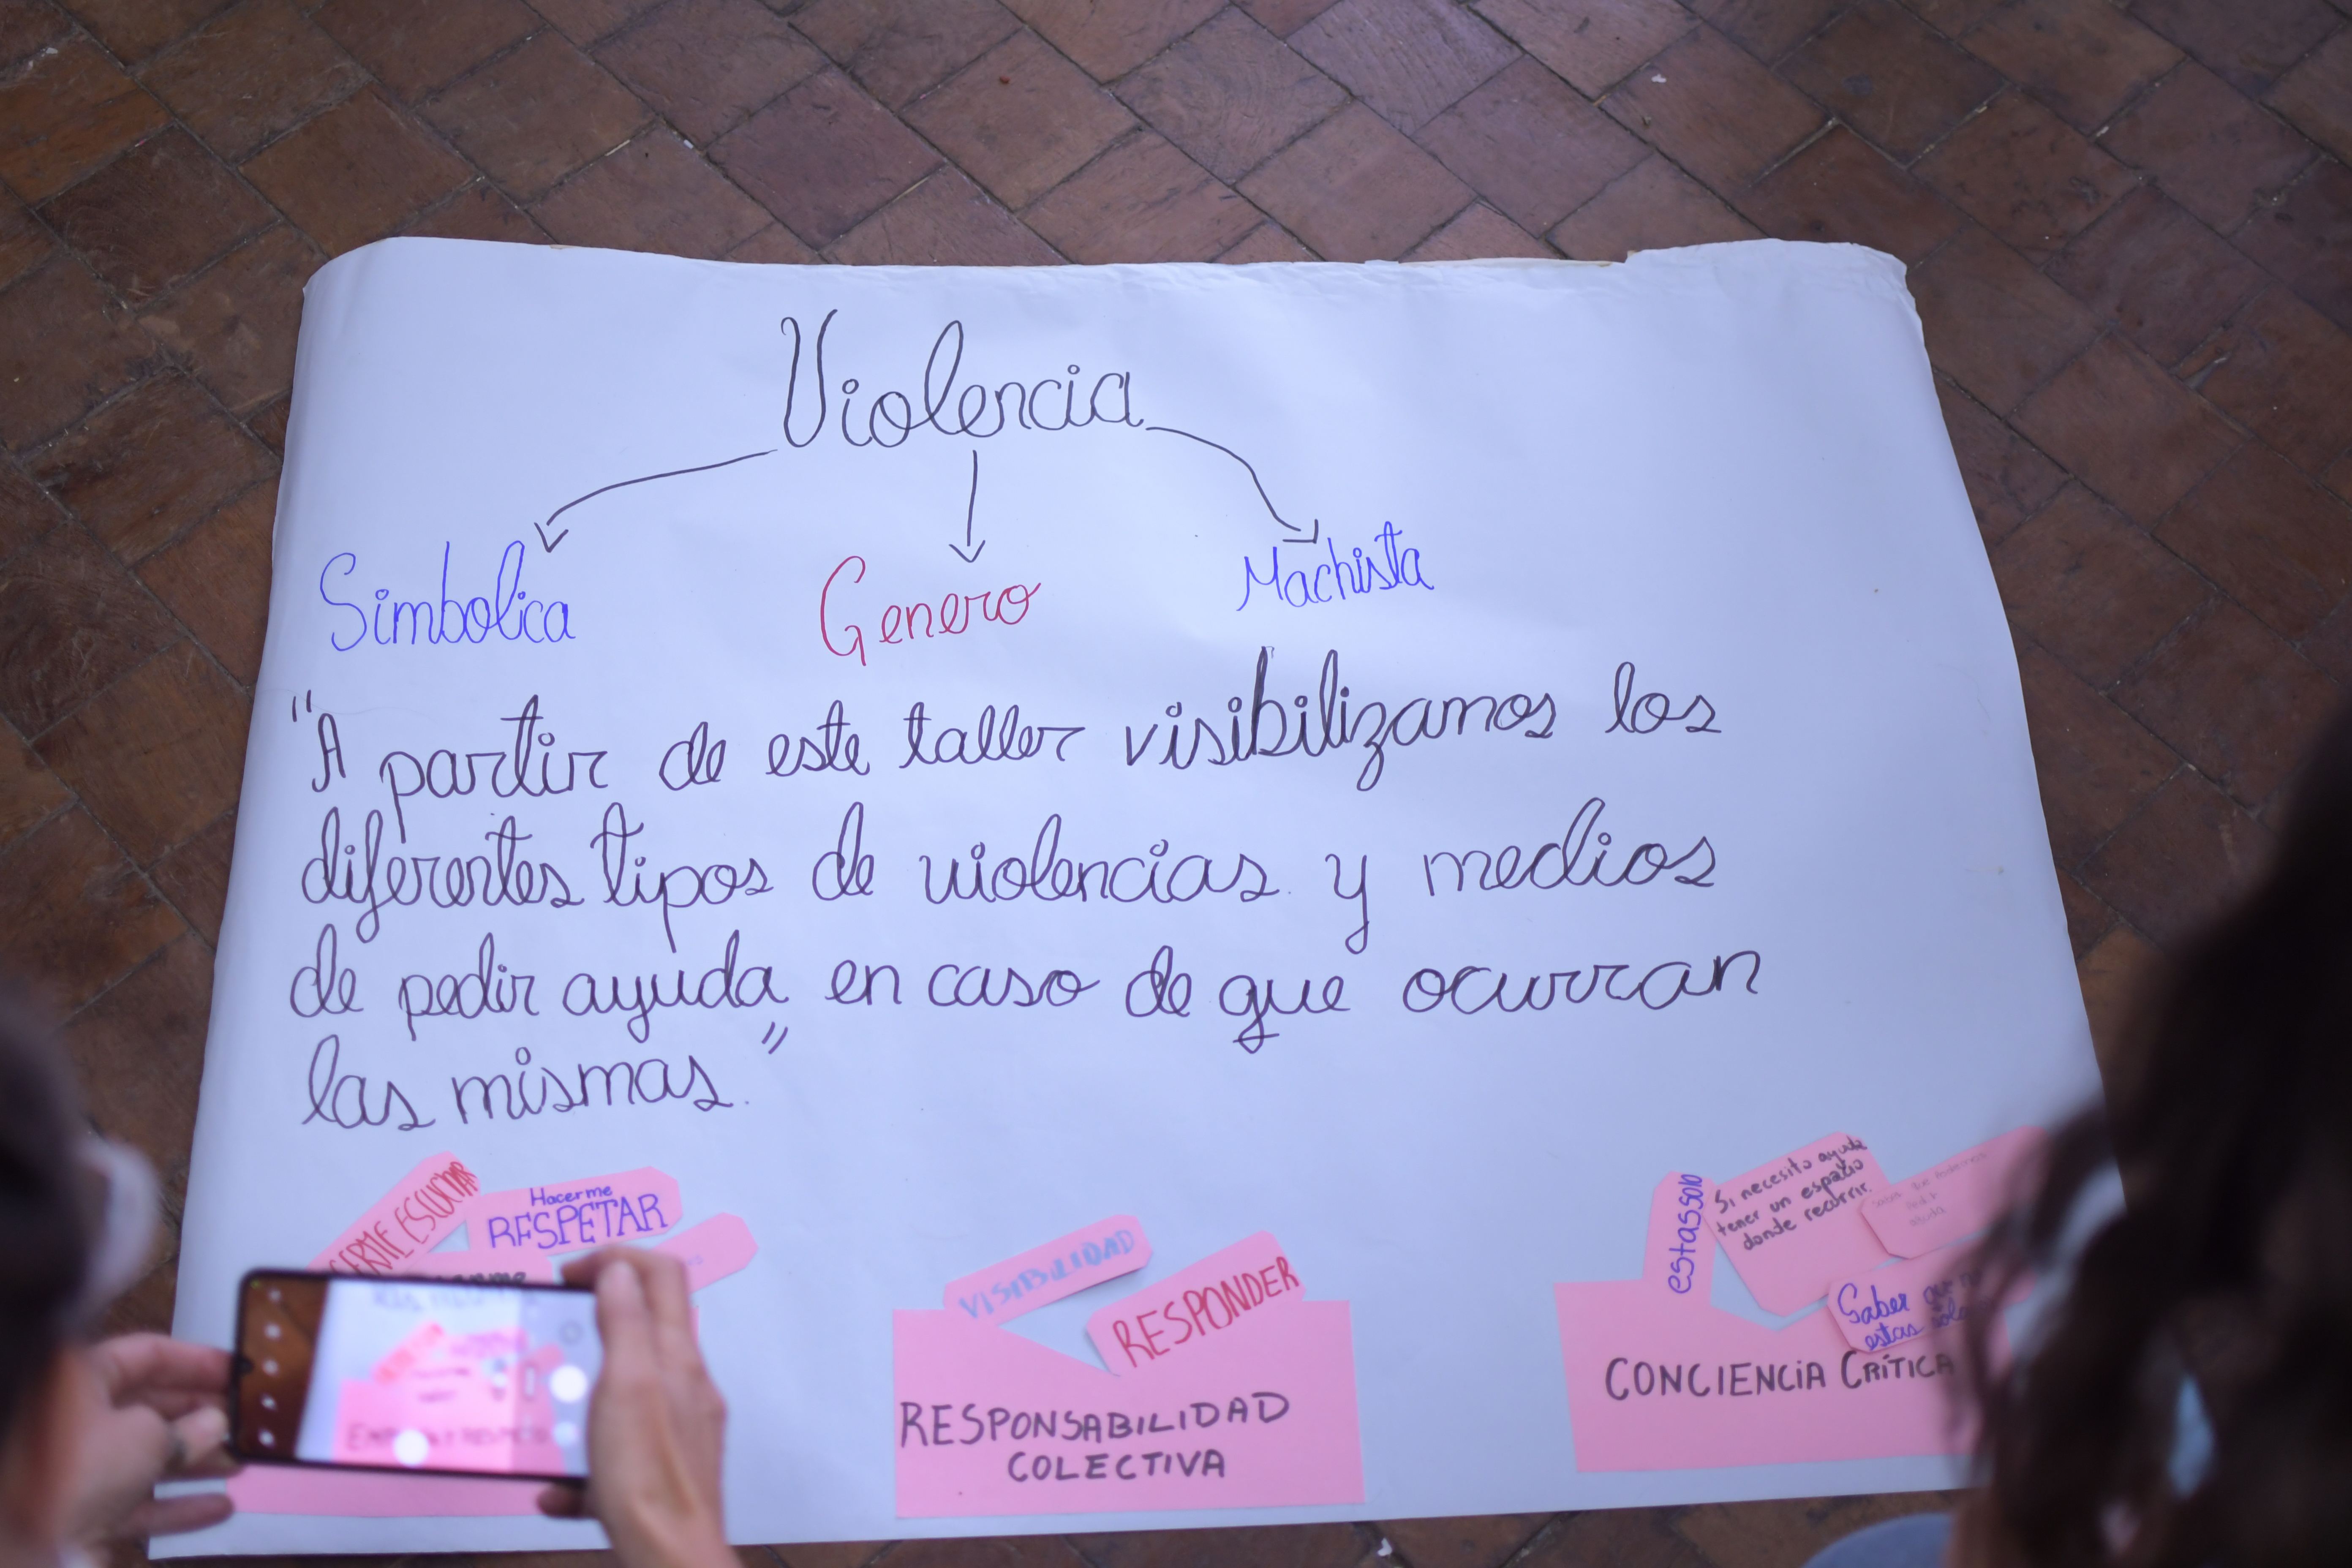 Violencia
Simbolica Genero Machista
"A partir de este taller visibilizamos los
diferentes tipos de violencias y medios
de pedir ayuda en caso de que ocurran
las mismas."
ESCUCHAR
Hacerme
RESPETAR
VISIBILIDAD
RESPONDER
RESPONSABILIDAD
COLECTIVA
estassolo
Si necesito ayuda
tener un espacio
donde recurrir.
Saber
estas
CONCIENCIA CRÍTICA